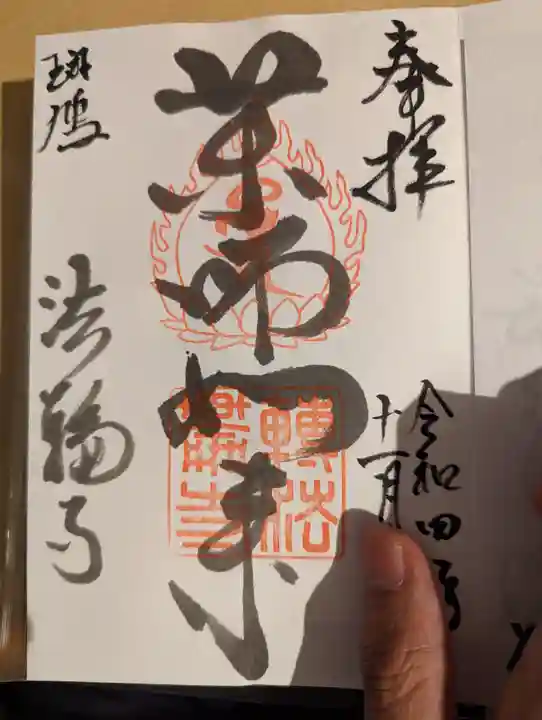 奉拝
令和四年
十一月
薬師如来
斑鳩
法輪寺